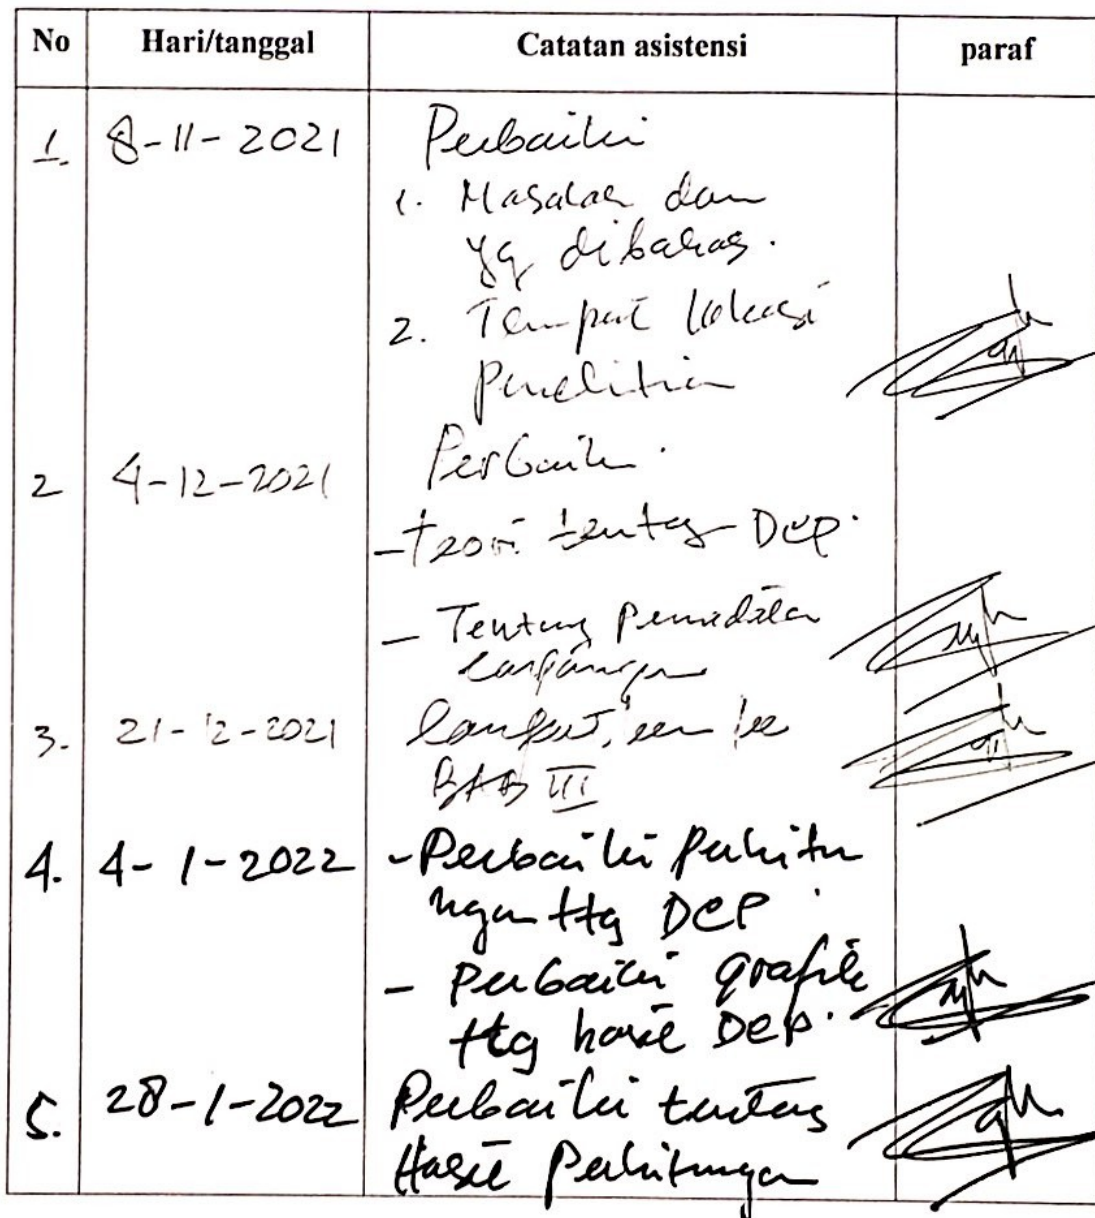 No Hari/tanggal Catatan asistensi paraf
1. 8-11-2021 Perbaiki
1. Masalah dan
yg dibahas.
2. Tempat lokasi
Penelitian
2 4-12-2021 Perbaiki.
- Teori tentang DCP.
- Tentang
3. 21-12-2021 Lanjut ke
BAB III
4. 4-1-2022 - Perbaiki perhitu
ngan ttg DCP.
- Perbaiki grafik
ttg hasil DCP.
5. 28-1-2022 Perbaiki tentang
Hasil Perhitungan